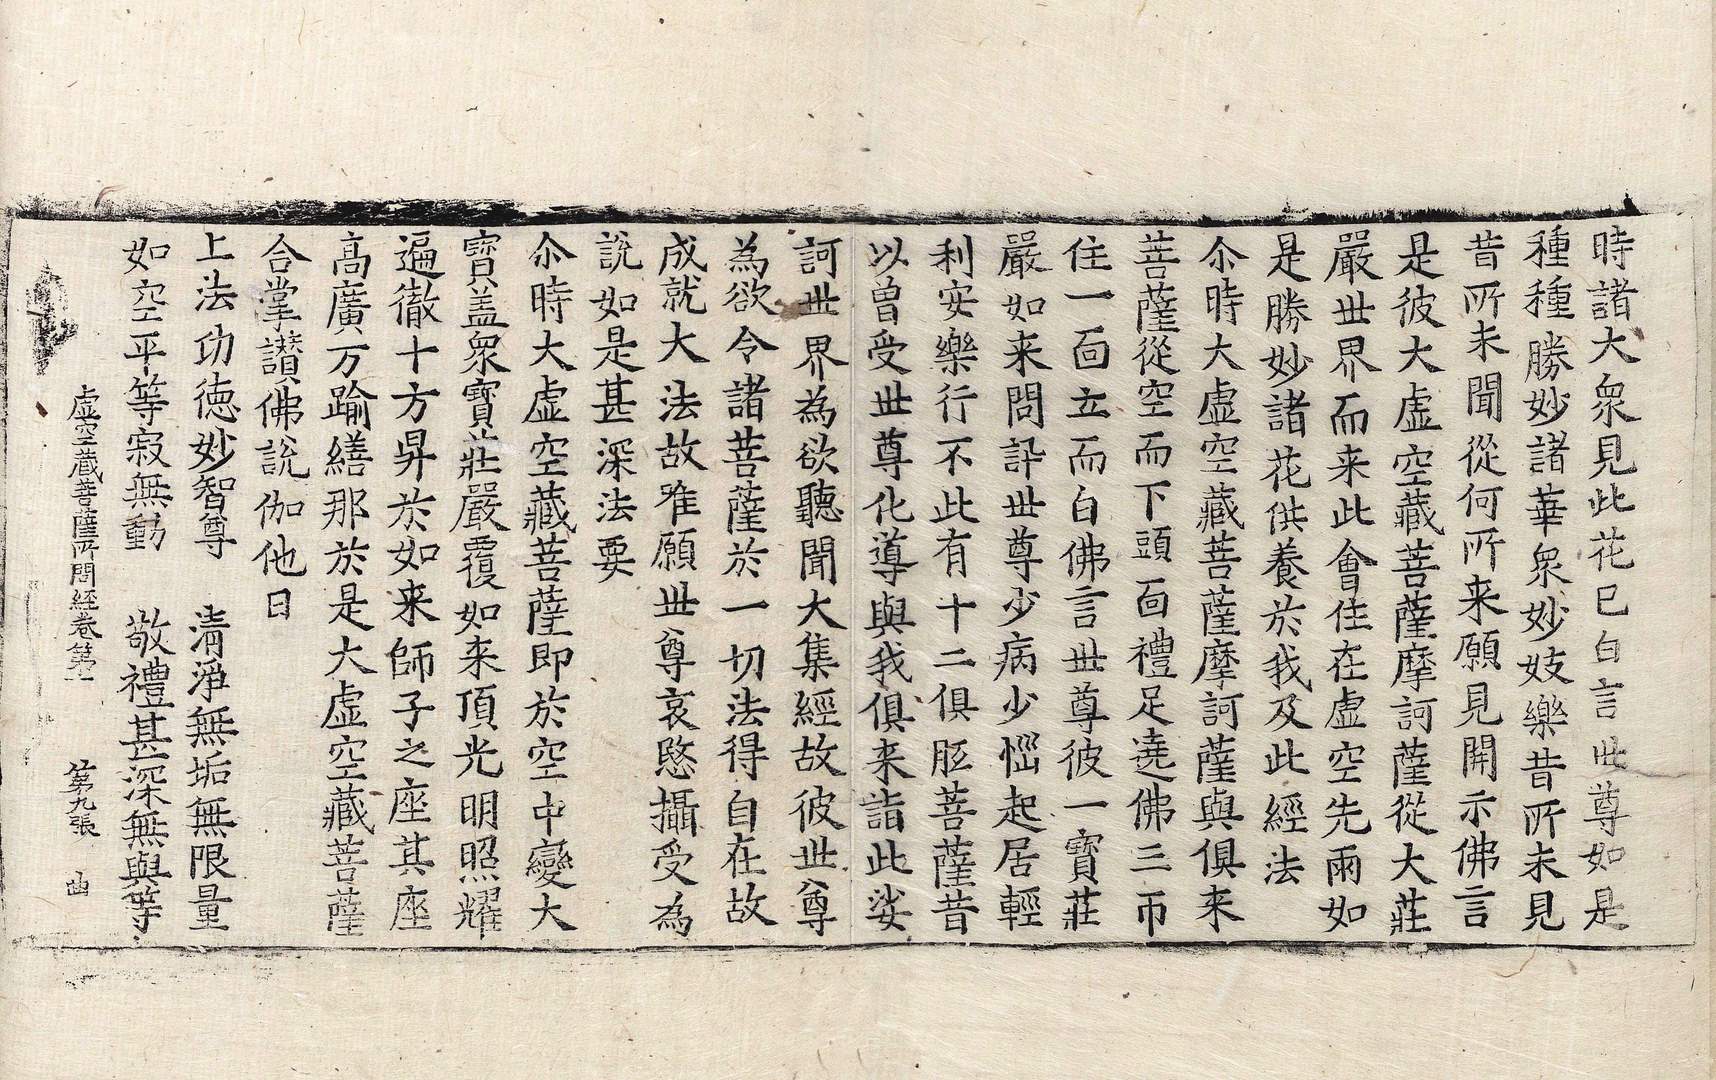 時諸大衆見此花已白言世尊如是
種種勝妙諸華衆妙妓樂昔所未見
昔所未聞從何所来願見開示佛言
是彼大虚空藏菩薩摩訶薩從大莊
嚴世界而来此會住在虚空先雨如
是勝妙諸花供養於我及此經法
尒時大虚空藏菩薩摩訶薩與俱来
菩薩從空而下頭面禮足遶佛三帀
住一面立而白佛言世尊彼一寶莊
嚴如来問訊世尊少病少惱起居輕
利安樂行不此有十二俱胝菩薩昔
以曾受世尊化導與我俱来詣此娑
訶世界為欲聽聞大集經故彼世尊
為欲令諸菩薩於一切法得自在故
成就大法故唯願世尊哀愍攝受為
說如是甚深法要
尒時大虚空藏菩薩即於空中變大
寶盖衆寶莊嚴覆如来頂光明照耀
遍徹十方昇於如来師子之座其座
高廣万踰繕那於是大虚空藏菩薩
合掌讃佛說伽他曰
上法功德妙智尊　清淨無垢無限量
如空平等寂無動　敬禮甚深無與等
虚空藏菩薩所問經卷第一　第九張　曲